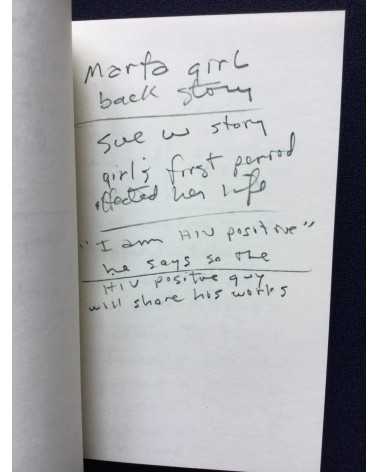 Marfa girl
back story
sue w story
girl's first period
effected her life
"I am HIV positive"
he says so the
HIV positive guy
will share his works